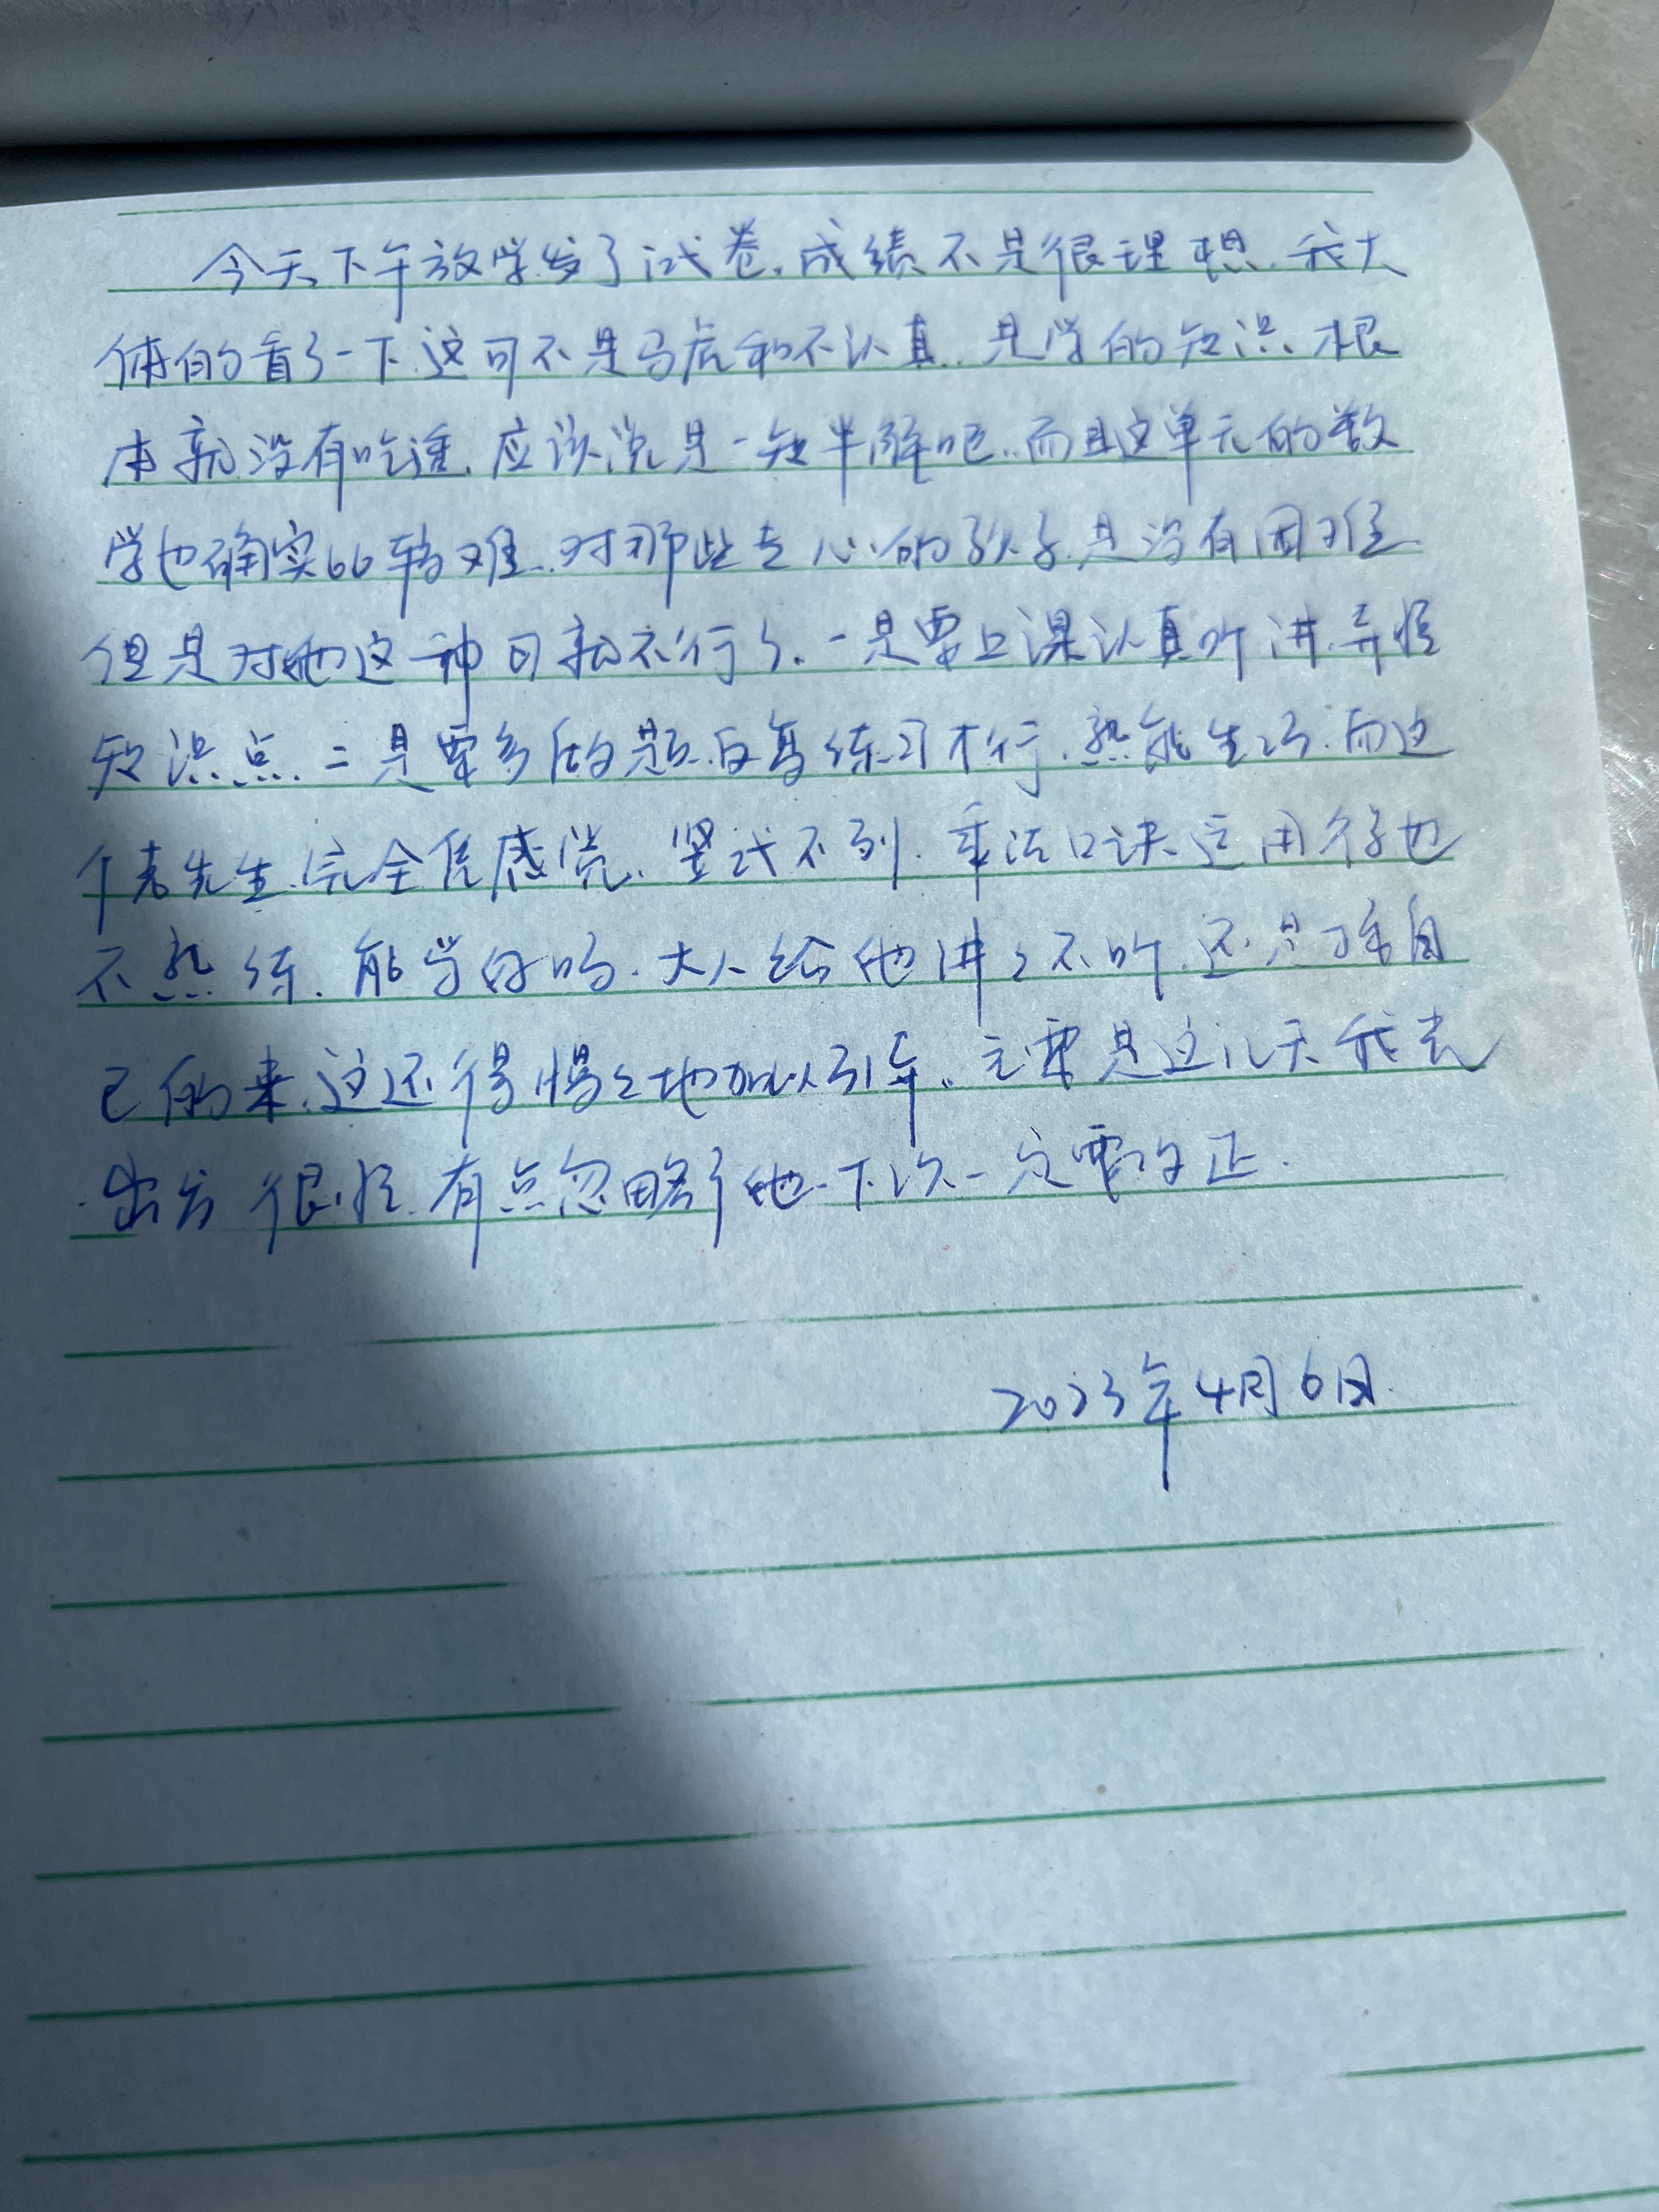 今天下午放学发了试卷.成绩不是很理想.我大
体的看了一下.这可不是马虎和不认真.是学的知识.根
本就没有吃透.应该说是一知半解吧.而且这单元的数
学也确实比较难.对那些专心的孩子.是没有困难.
但是对他这种可就不行了.一是要上课认真听讲.弄懂
知识点.二是要多做题.反复练习才行.熟能生巧.而这
个老先生.完全凭感觉.竖式不列.乘法口诀运用得也
不熟练.能学好吗.大人给他讲又不听.还是按自
己的来.这还得慢々地加以引导.主要是这几天我去
出去很忙.有点忽略了他.下次一定要改正.
2023年4月6日.